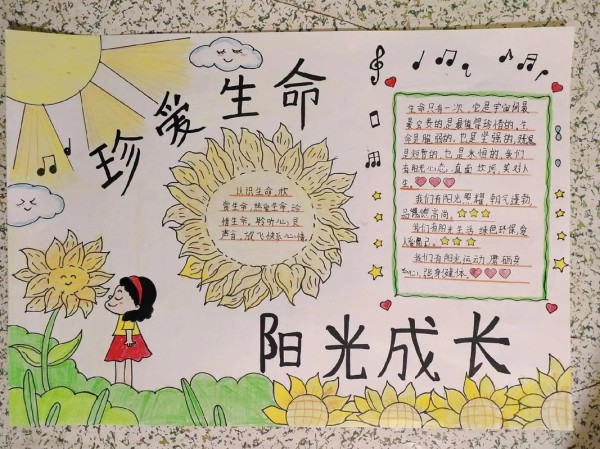 珍爱生命
认识生命,欣
赏生命,热爱生命,珍
惜生命。聆听心灵
声音,放飞快乐心情。
生命只有一次,它是宇宙间最
最宝贵的,是最值得珍惜的,生
命是脆弱的,也是坚强的,
是短暂的,也是永恒的,我们
有阳光心态,直面坎坷,笑对人
生。
我们有阳光照耀,朝气蓬勃,
我们有阳光生活,绿色环保,
我们有阳光运动,磨砺身
心,强身健体。
阳光成长